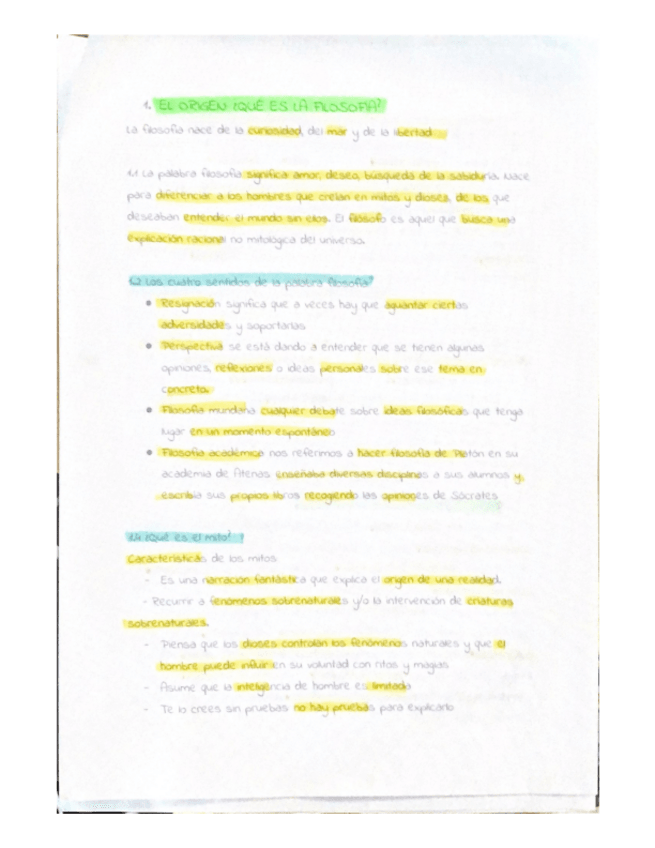 1. EL ORIGEN ¿QUÉ ES LA FILOSOFIA?
La filosofía nace de la curiosidad, del mar y de la libertad
1.1 La palabra filosofía significa amor, deseo, búsqueda de la sabiduria. Nace
para diferenciar a los hombres que creían en mitos y dioses, de los que
deseaban entender el mundo sin elos. El filósofo es aquel que busca una
explicación racional no mitológica del universo.
Los cuatro sentidos de la palabra filosofía"
• Resignación significa que a veces hay que aguantar ciertas
adversidades y soportarlas
• Perspectiva se está dando a entender que se tienen algunas
opiniones, reflexiones o ideas personales sobre ese tema en
concreto.
• Filosofía mundana cualquier debate sobre ideas filosóficas que tenga
lugar en un momento espontáneo
• Filosofía académica nos referimos a hacer filosofía de Platón en su
academia de Atenas enseñaba diversas disciplinas a sus alumnos y
escribía sus propios libros recogiendo las opiniones de Sócrates
¿Qué es el mito?
Características de los mitos
- Es una narración fantástica que explica el origen de una realidad.
- Recurrir a fenómenos sobrenaturales y/o la intervención de criaturas
sobrenaturales.
- Piensa que los dioses controlan los fenómenos naturales y que el
hombre puede influir en su voluntad con ritos y magias
- Asume que la inteligencia de hombre es limitada
- Te lo crees sin pruebas no hay pruebas para explicarlo